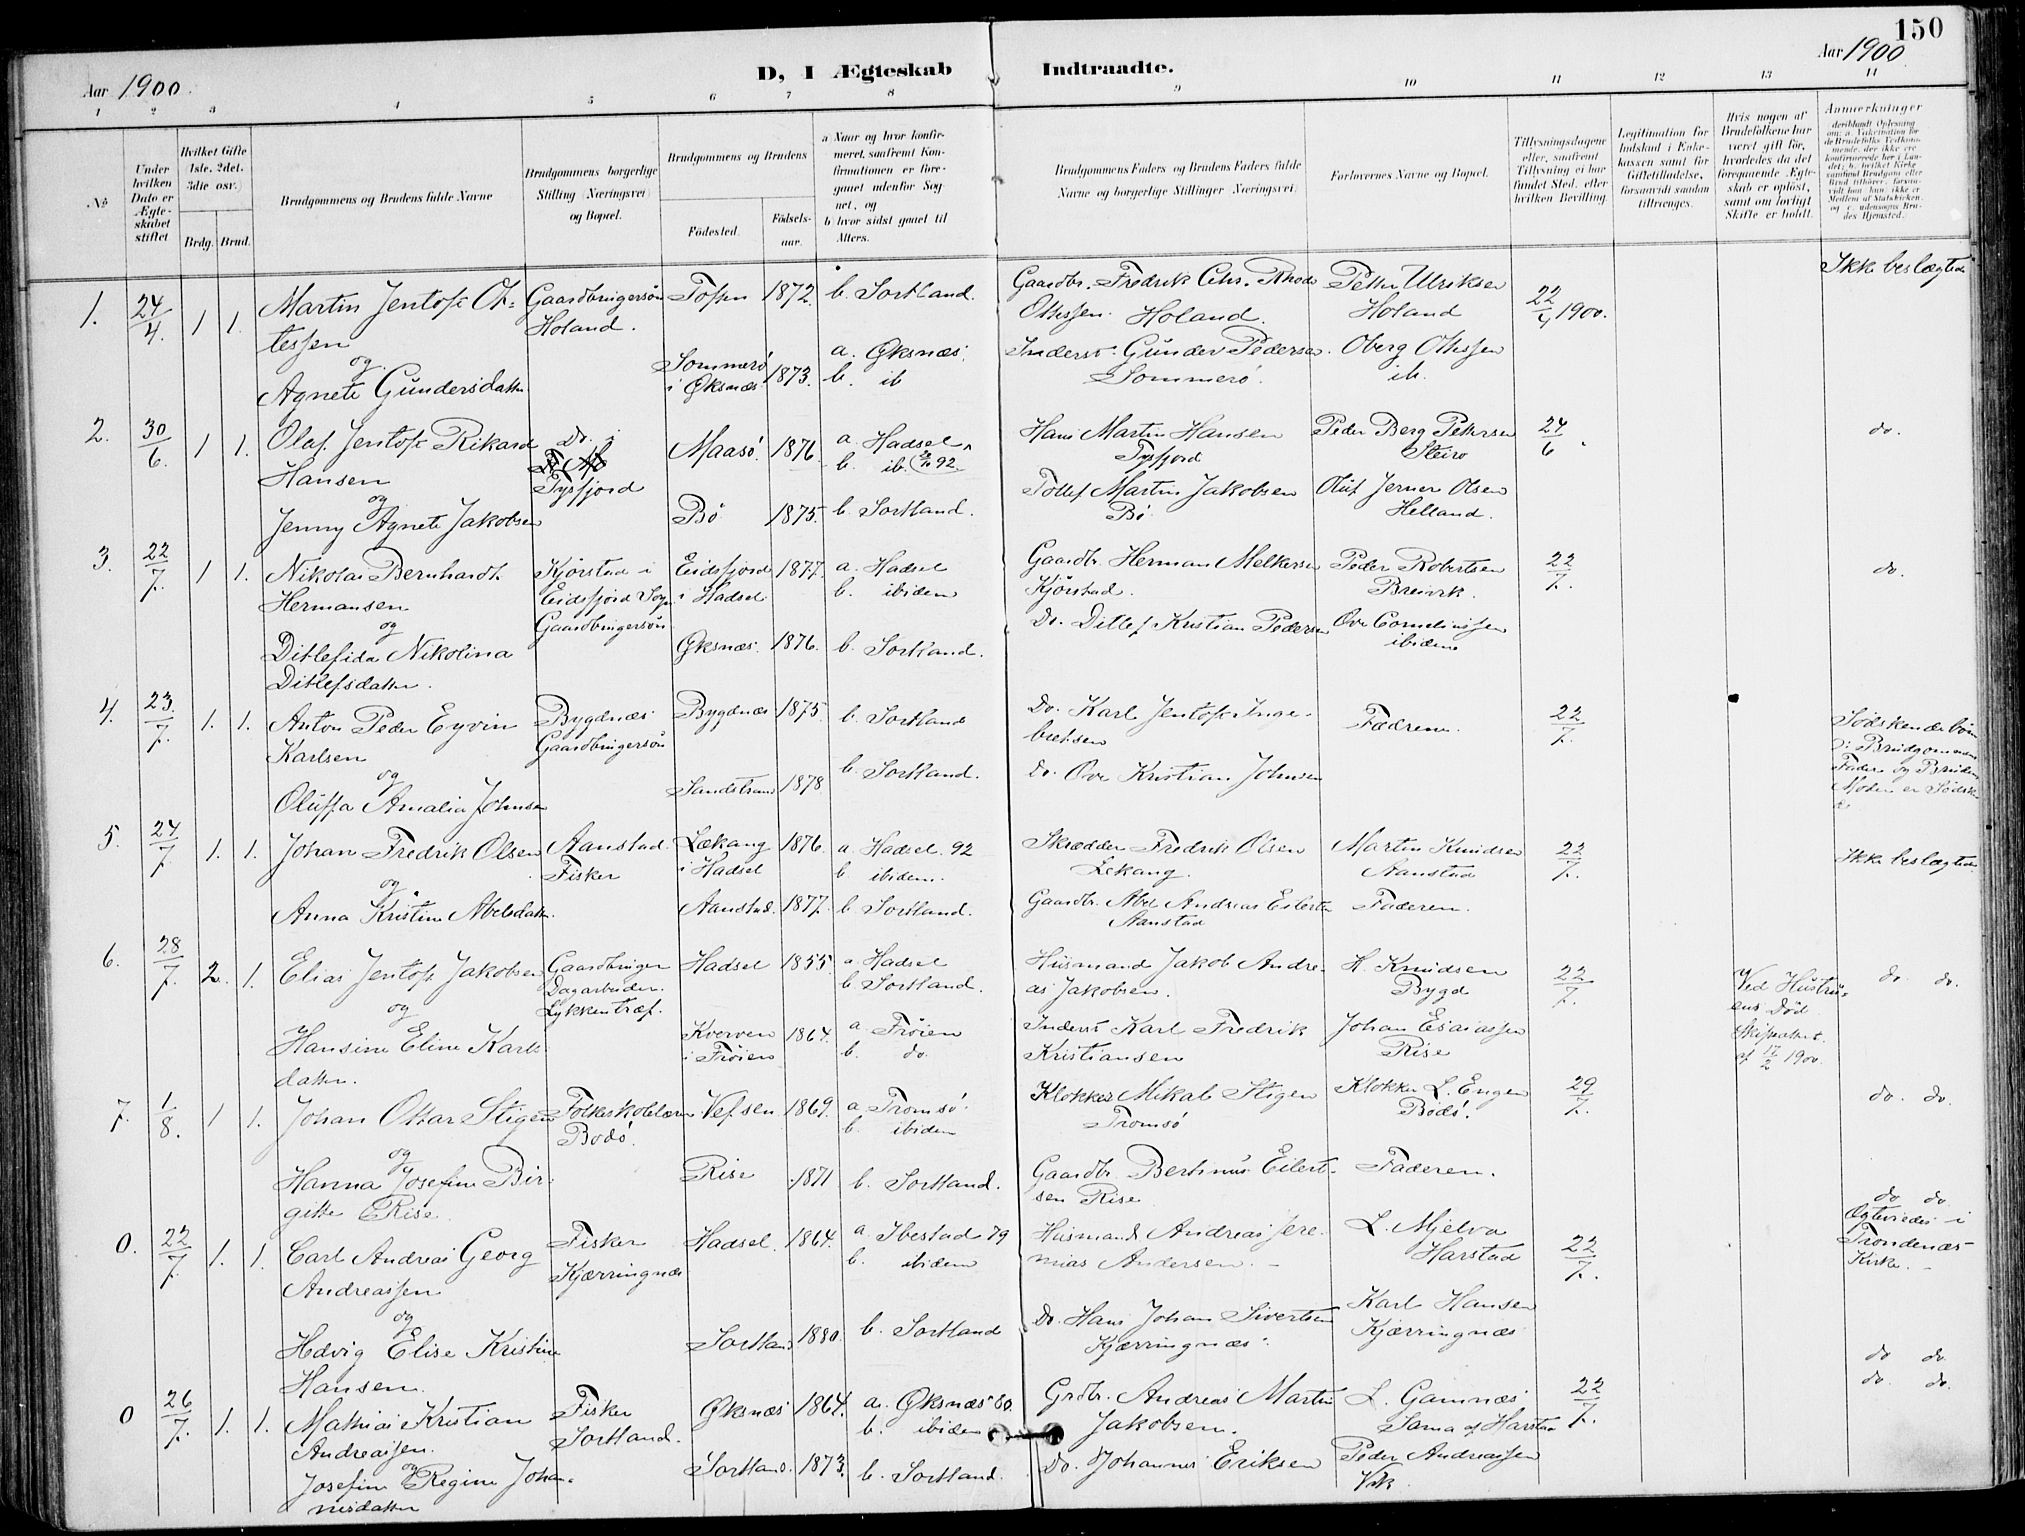 150
Aar 1900.
D, I Ægteskab Indtraadte.
Aar 1900
1 2 3 4 5 6 7 8 9 10 11 12 13 14
No
Under hvilken Dato er Ægteskabet stiftet
Hvilket Gifte 1ste, 2det, 3die osv.)
Brdg. Brud.
Brudgommens og Brudens fulde Navne
Brudgommens borgerlige Stilling (Næringsvei) og Bopæl.
Brudgommens og Brudens
Fødested.
Fødselsaar.
a Naar og hvor konfirmeret, saafremt Konfirmationen er foregaaet udenfor Sognet, og
b hvor sidst gaaet til Alters.
Brudgommens Faders og Brudens Faders fulde Navne og borgerlige Stillinger (Næringsvei).
Forlovernes Navne og Bopæl.
Tillysningsdagene eller, saafremt Tillysning ei har fundet Sted, efter hvilken Bevilling.
Legitimation for Indskud i Enkekassen samt for Giftetilladelse, forsaavidt saadan tiltrænges.
Hvis nogen af Brudefolkene har været gift før, hvorledes da det foregaaende Ægteskab er opløst, samt om lovligt Skifte er holdt.
Anmerkninger
1. 24/4. 1 1. Martin Jentoft Ot-
tessen
og
Agnete Gundersdatter
Gaardbrugersøn
Holand.
1872.
b. Sortland.
Sommerø
i Øksnæs
1873.
a. Øksnæs.
b. ib
Gaardbr. Fredrik Chr. Rhode
Ottessen. Holand.
Gunder Pedersen.
Sommerø.
Petter Ulriksen
Holand
Oberg Ottessen
ib.
22/4 1900.
Ikke beslægtede
2. 30/6. 1 1. Olaf Jentoft Rikard
Hansen
og
Jenny Agnete Jakobsen
Do. i
Tysfjord
Maasø. 1876
a. Hadsel
b. ib.
Bø 1875. b. Sortland.
Hans Martin Hansen
Tysfjord
Tollef Martin Jakobsen
Bø.
Peder Berg Petersen
Steiro
Oluf Jerner Olsen
Helland.
24/6.
do.
3. 22/7. 1 1. Nikolai Bernhardt
Hermansen
og
Ditlefida Nikolina
Ditlefsdatter.
Kjørstad i
Eidsfjord Sogn
Gaardbrugersøn
Eidsfjord
i Hadsel
1877.
a. Hadsel
b. ibidem
Øksnæs. 1876. b. Sortland.
Gaardbr. Herman Melkersen
Kjørstad.
Do. Ditlef Kristian Pedersen
Peder Robertsen
Breivik.
Ove Corneliussen
ibidem
22/7.
do.
4. 23/7. 1. 1. Anton Peder Eyvin
Karlsen
og
Oluffa Amalia Johnsen
Bygdnæs
Gaardbrugersøn
Bygdnæs 1875. b. Sortland
Sandstrand 1878 b. Sortland.
Do. Karl Jentoft Inge-
bretsen
Do. Ove Kristian Johnsen
Fædrene.
22/7.
Sødskendebørn
o: Brudgommens
Fader og Brudens
Moder er Sødsk-
e
5. 24/7 1. 1. Johan Fredrik Olsen
og
Anna Kristine Abelsdatter.
Aanstad.
Fisker
Lekang
i Hadsel
1876.
a. Hadsel. 92
b ibidem.
Aanstad. 1877. b. Sortland.
Skrædder Fredrik Olsen
Lekang.
Gaardbr. Abel Andreas Eilertsen
Aanstad
Martin Knudsen
Aanstad
Faderen.
22/7.
Ikke beslægtede
6. 28/7. 2. 1. Elias Jentoft Jakobsen
og
Hansine Eline Karls-
datter.
Gaardbruger
Dagarbeider.
Lykkentræf.
Hadsel 1855.
a. Hadsel
b. Sortland.
Kverven
i Frøien
1864.
a. Frøien
b. do.
Husmand Jakob Andre-
as Jakobsen.
Inderst Karl Fredrik
Kristiansen
H. Knudsen
Bygd
Johan Esaiassen
Rise
22/7.
Ved Hustru-
ens Død
Skifteattest
af 17/2 1900.
do. do.
7. 1/8. 1 1. Johan Ottar Stigen
og
Hanna Josefine Bir-
gitte Rise.
Folkeskolelærer
Bodø.
Vefsen 1869.
a. Tromsø.
b. ibidem
Rise 1871 b. Sortland.
Klokker Mikal Stigen
Tromsø
Gaardbr. Bertinus Eilert-
sen Rise
Klokker L. Engen
Bodø.
Faderen.
29/7.
do. do.
0. 22/7. 1. 1. Carl Andreas Georg
Andreassen
og
Hedvig Elise Kristine
Hansen.
Fisker
Kjærringnæs
Hadsel. 1864.
a. Ibestad 79
b. ibidem
Sortland 1880. b. Sortland
Husmand Andreas Jere-
mias Andersen.
Do. Hans Johan Sivertsen
Kjærringnæs.
L. Mjelva
Harstad
Karl Hansen
Kjærringnæs
22/7.
do do.
Ægteviedes i
Trondenæs
Kirke.
do do.
0 26/7. 1. 1. Mathias Kristian
Andreassen.
og
Josefine Regine Johan-
nesdatter
Fisker
Sortland.
Øksnæs 1864.
a. Øksnæs 80.
b. ibidem
Sortland. 1873. b. Sortland.
Grdbr. Andreas Martin
Jakobsen.
Do. Johannes Eriksen
L. Gamnæs
Sama af Harstad
Peder Andreassen
Vik.
22/7.
do. do.